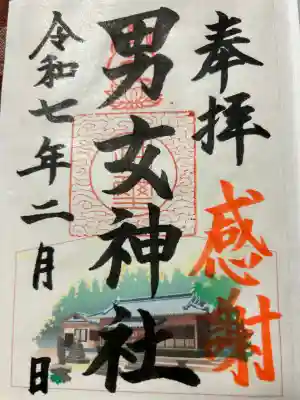 奉拝
感謝
男女神社
令和七年二月 日